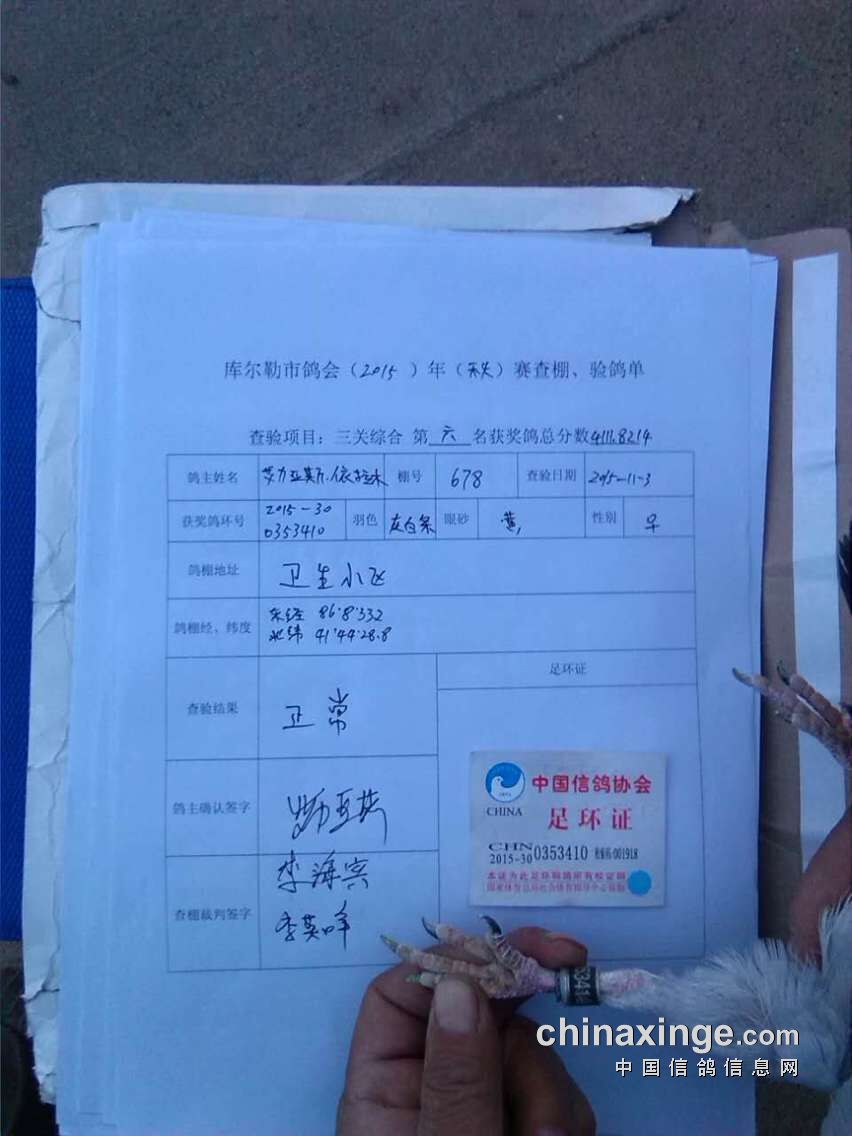 库尔勒市鸽会（2015）年（秋）赛查棚、验鸽单
查验项目：三关综合 第六名获奖鸽总分数4111.8214
鸽主姓名 艾力亚斯.依拉木 棚号 678 查验日期 2015-11-3
获奖鸽环号 2015-30 0353410 羽色 灰白条 眼砂 黄 性别 ♀
鸽棚地址 卫生小区
鸽棚经、纬度 东经 86°8'332
北纬 41°44'28.8
查验结果 正常 足环证
鸽主确认签字
查棚裁判签字 李海宾
李英
中国信鸽协会
CHINA
足环证
CHN
2015-30 0353410 :001918
本证为此足环和鸽所有权证明
chinaxinge.com
中国信鸽信息网